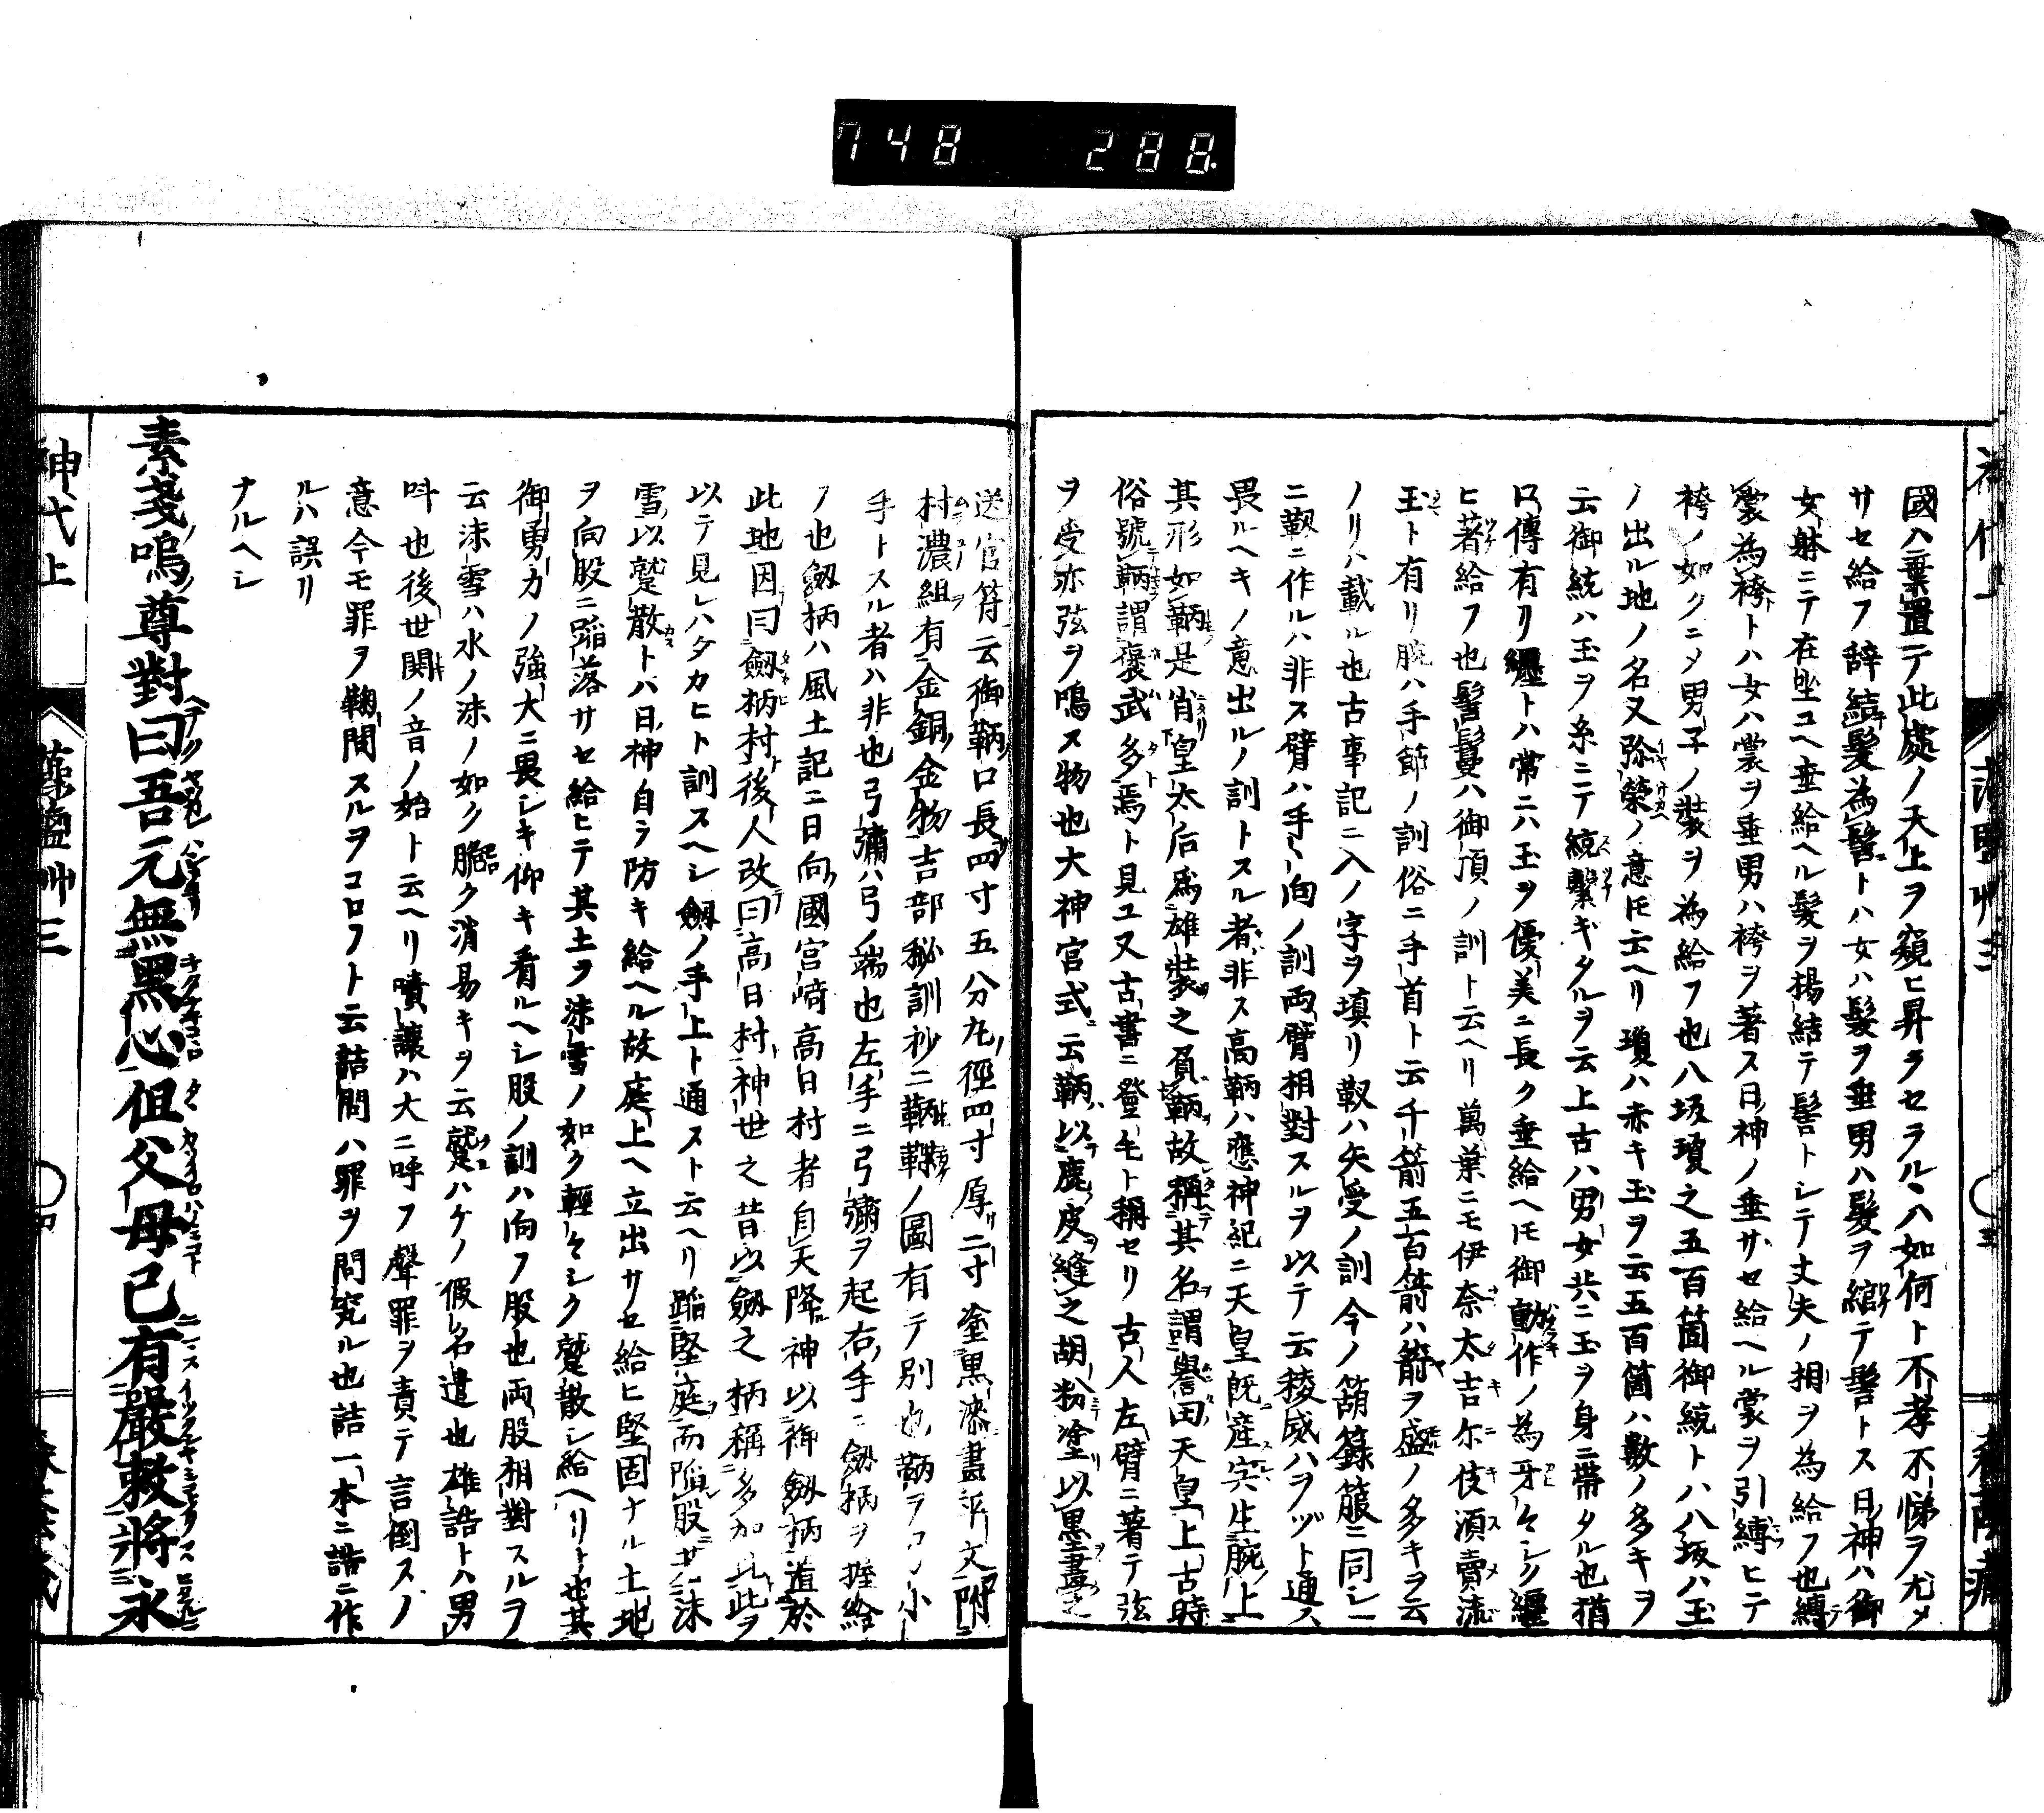 748 288
國ハ棄置テ此處ノ天上ヲ窺ヒ昇ラセラルヽハ如何ト不孝不悌ヲ尤メ
サセ給フ辞結髮為髻トハ女ハ髮ヲ垂男ハ髮ヲ綰テ髻トス日神ハ御
女躰ニテ在坐ユヘ垂給ヘル髮ヲ揚結テ髻トシテ丈夫ノ相ヲ為給フ也縛
裳為袴トハ女ハ裳ヲ垂男ハ袴ヲ著ス日神ノ垂サセ給ヘル裳ヲ引縛ヒテ
袴ノ如クニメ男子ノ裝ヲ為給フ也八坂瓊之五百箇御統トハ八坂ハ玉
ノ出ル地ノ名又弥榮ノ意トモ云ヘリ瓊ハ赤キ玉ヲ云五百箇ハ數ノ多キヲ
云御統ハ玉ヲ糸ニテ統繫ギタルヲ云上古ハ男女共ニ玉ヲ身ニ帶タル也猶
口傳有リ纒トハ常ニハ玉ヲ優美ニ長ク垂給ヘトモ御動作ノ為牙々シク纒
ヒ著給フ也髻鬘ハ御頂ノ訓ト云ヘリ萬葉ニモ伊奈太吉尓伎須賣流
玉ト有リ腕ハ手節ノ訓俗ニ手首ト云千箭五百箭ハ箭ヲ盛ノ多キヲ云
ノリハ載ル也古事記ニ入ノ字ヲ填リ靫ハ矢受ノ訓今ノ葫籙箙ニ同シ一
ニ靱ニ作ルハ非ス臂ハ手向ノ訓両臂相對スルヲ以テ云稜威ハヲヅト通ス
畏ルヘキノ意出ルノ訓トスル者非ス高鞆ハ應神紀ニ天皇既産宍生腕上
其形如鞆是肖皇太后為雄裝之負鞆故稱其名謂譽田天皇上古時
俗號鞆謂褒武多焉ト見ユ又古書ニ登毛ト稱セリ古人左臂ニ著テ弦
ヲ受亦弦ヲ鳴ス物也大神宮式云鞆以鹿皮縫之胡粉塗以墨畫之
送官符云御鞆口長四寸五分丸徑四寸厚二寸塗黒漆畫平文附
村濃組有金銅金物吉部秘訓抄ニ鞆鞢ノ圖有テ別也鞆ヲコノ小
手トスル者ハ非也弓彇ハ弓ノ端也左手ニ弓彇ヲ起右手ニ劔柄ヲ握給
ノ也劔柄ハ風土記ニ日向國宮﨑高日村者自天降神以御劔柄置於
此地因曰劔柄村後人改曰高日村神世之昔以劔之柄稱多加此此ヲ
以テ見レハタカヒト訓スヘシ劔ノ手上ト通スト云ヘリ蹈堅庭而陷股若沫
雪以蹴散トハ日神自ラ防キ給ヘル故庭上ヘ立出サセ給ヒ堅固ナル土地
ヲ向股ニ蹈落サセ給ヒテ其土ヲ沫雪ノ如ク輕々シク蹴散シ給ヘリト也其
御勇力ノ強大ニ畏シキ仰キ看ルヘシ股ノ訓ハ向フ股也両股相對スルヲ
云沫雪ハ水ノ沫ノ如ク脆ク消易キヲ云蹴ハケノ假名遣也雄誥トハ男
呌也後世鬨ノ音ノ始ト云ヘリ嘖讓ハ大ニ呼フ聲罪ヲ責テ言倒スノ
意今モ罪ヲ鞠問スルヲコロフト云詰問ハ罪ヲ問究ル也詰一本ニ誥ニ作
ルハ誤リ
ナルヘシ
素戔嗚尊對曰吾元無黑心但父母已有嚴敕將永
神代上
藻鹽艸三
四